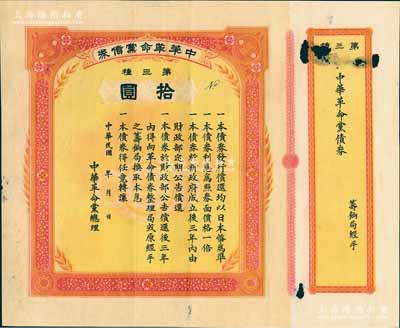 中華革命黨債券
第三種
拾圓
№
一本債券發行償還均以日本幣為準
一本債券利息為照券面價格一倍
一本債券於新政府成立後三年內由
財政部定期公告償還
一本債券於財政部公告償還後三年
內得向革命債券整理局或原經手
之籌餉局換取本息
一本債券得任意轉讓
中華民國 年 月 日
中華革命黨總理
第三種
中華革命黨債券
籌餉局經手